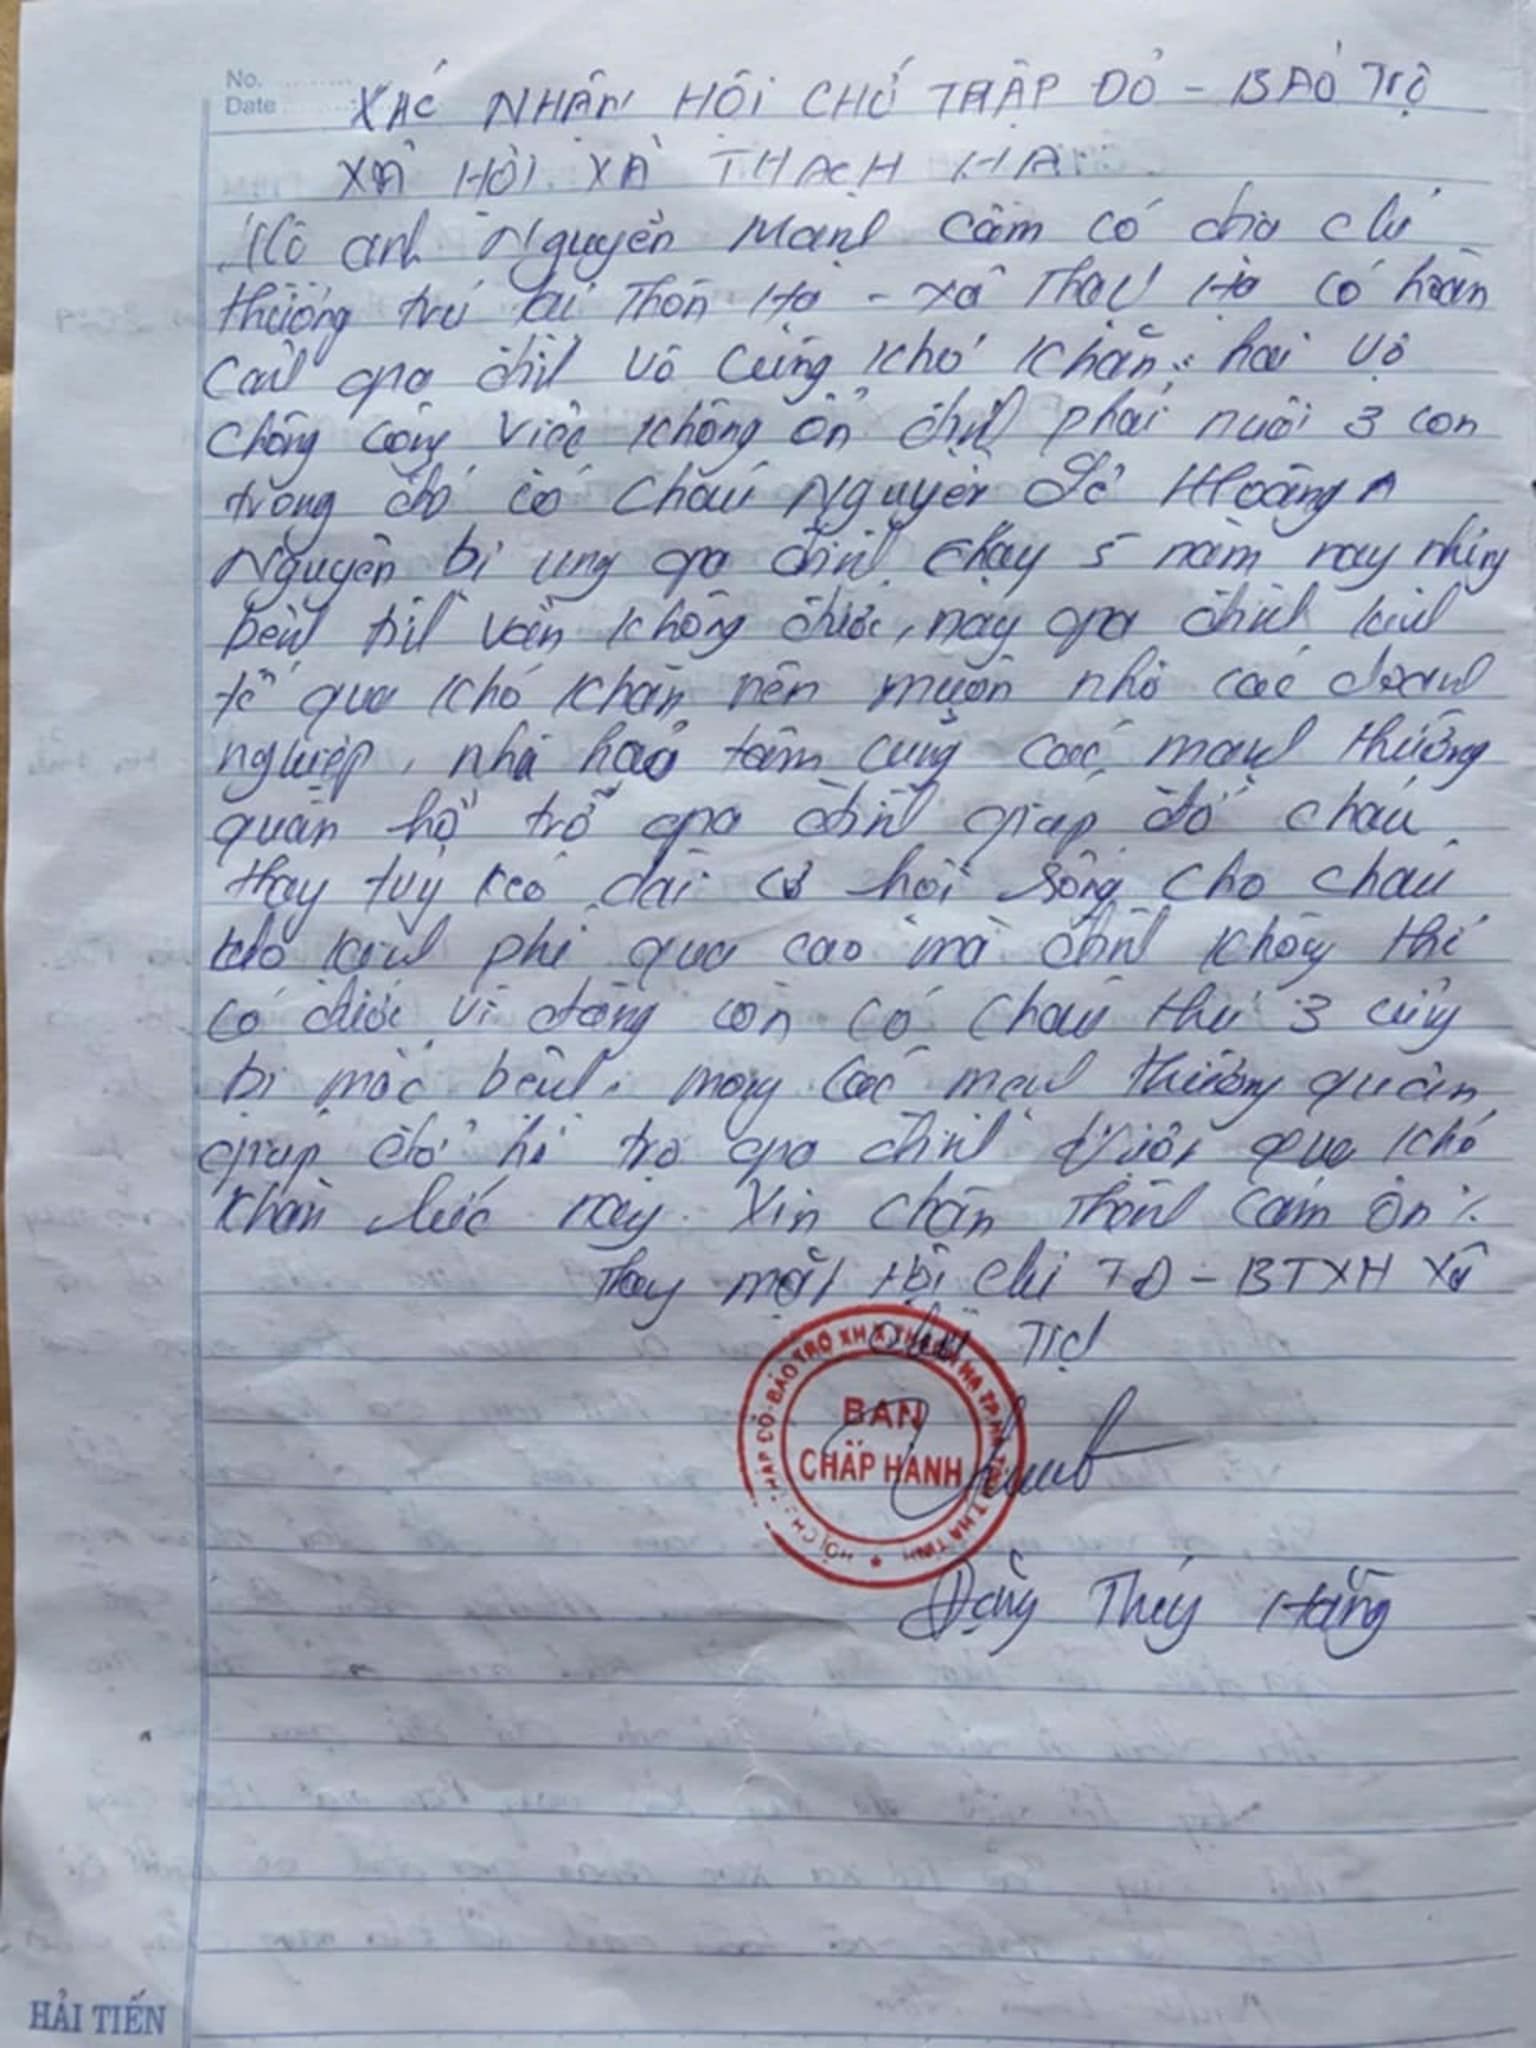 No.
Date
XÁC NHẬN HỘI CHỮ THẬP ĐỎ - BẢO TRỢ
XÃ HỘI XÃ THẠCH HẠ
Hộ anh Nguyễn Mạnh Cầm có địa chỉ
thường trú tại Thôn Hạ - xã Thạch Hạ có hoàn
cảnh gia đình vô cùng khó khăn: hai vợ
chồng công việc không ổn định phải nuôi 3 con
trong đó có cháu Nguyễn Hoàng
Nguyên bị ung gia đình chạy 5 năm nay nhưng
bệnh tình vẫn không được, nay gia đình kinh
tế quá khó khăn nên muốn nhờ các doanh
nghiệp, nhà hảo tâm cùng các mạnh thường
quân hỗ trợ gia đình giúp đỡ cháu
thay tủy kéo dài cơ hội sống cho cháu
do kinh phí quá cao mà đình không thể
có được vì đồng còn có cháu thứ 3 cũng
bị mắc bệnh. mong các mạnh thường quân
giúp đỡ hỗ trợ gia đình vượt qua khó
khăn lúc này. Xin chân thành cảm ơn ./.
Thay mặt Hội Chữ TĐ - BTXH Xã
Chủ Tịch
HỘI CHỮ THẬP ĐỎ-BẢO TRỢ XH X. THẠCH HẠ TP. HÀ TĨNH T. HÀ TĨNH
BAN
CHẤP HÀNH
Đặng Thúy Hằng
HẢI TIẾN